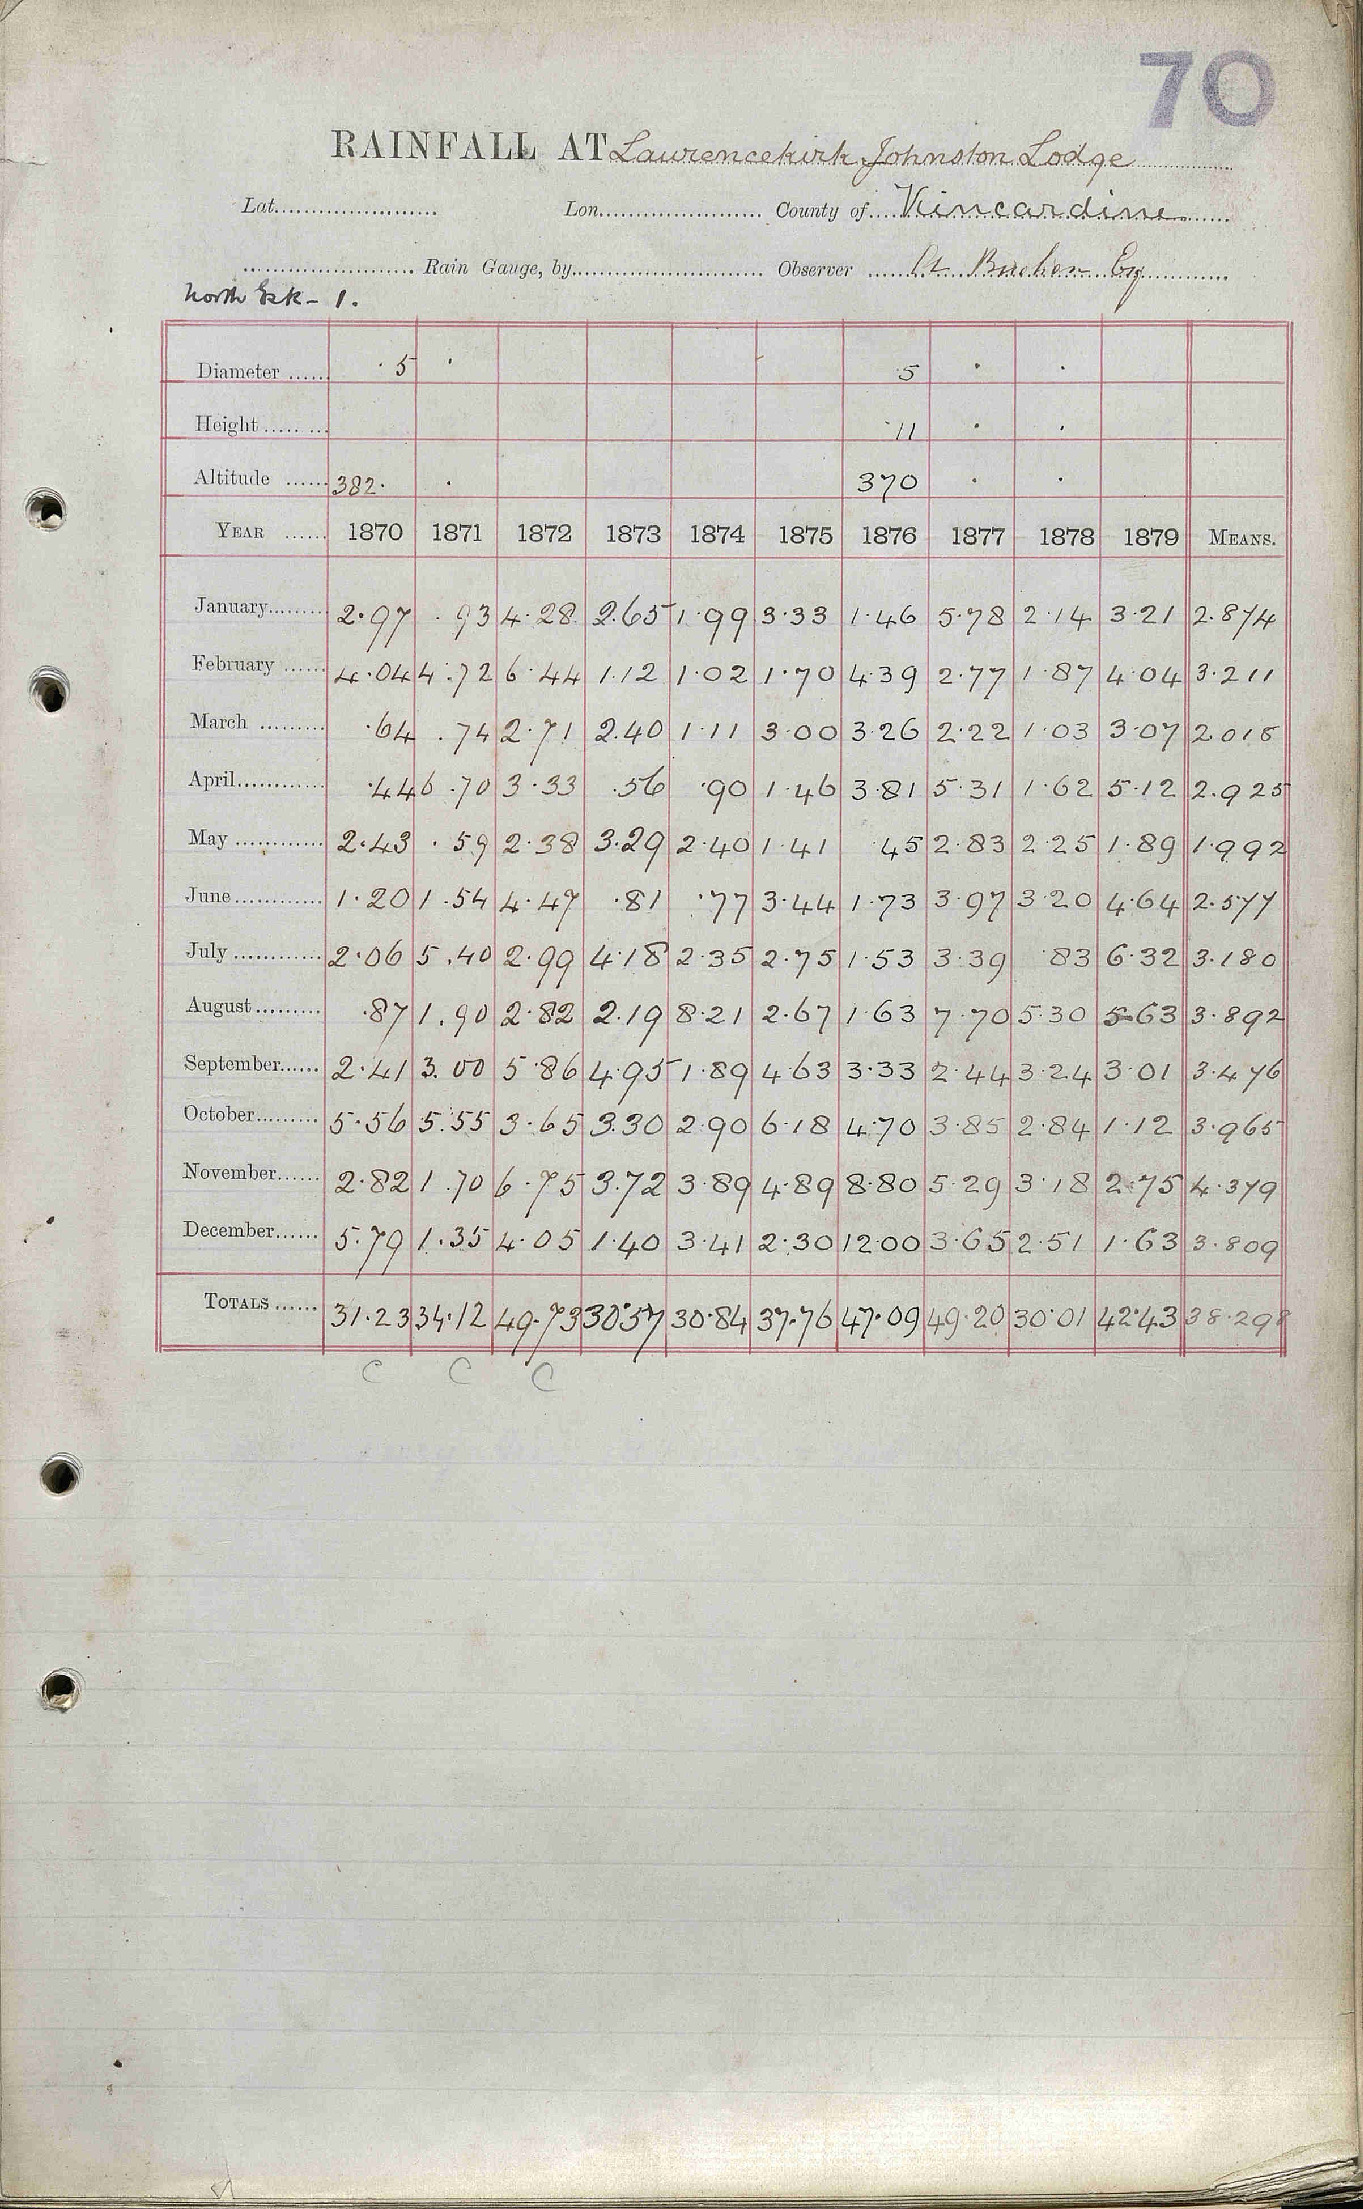 70
RAINFALL AT Laurencekirk Johnston Lodge
Lat. Lon. County of Kincardine
Rain Gauge, by Observer A. Buchan Esq
North Esk - 1.
Diameter ...... 5 · 5 · ·
Height ...... 11 · ·
Altitude ...... 382. · 370 · ·
YEAR ...... 1870 1871 1872 1873 1874 1875 1876 1877 1878 1879 MEANS.
January 2.97 .93 4.28 2.65 1.99 3.33 1.46 5.78 2.14 3.21 2.874
February 4.04 4.72 6.44 1.12 1.02 1.70 4.39 2.77 1.87 4.04 3.211
March .64 .74 2.71 2.40 1.11 3.00 3.26 2.22 1.03 3.07 2.018
April .44 6.70 3.33 .56 .90 1.46 3.81 5.31 1.62 5.12 2.925
May 2.43 .59 2.38 3.29 2.40 1.41 45 2.83 2.25 1.89 1.992
June 1.20 1.54 4.47 .81 .77 3.44 1.73 3.97 3.20 4.64 2.577
July 2.06 5.40 2.99 4.18 2.35 2.75 1.53 3.39 .83 6.32 3.180
August .87 1.90 2.82 2.19 8.21 2.67 1.63 7.70 5.30 5.63 3.892
September 2.41 3.00 5.86 4.95 1.89 4.63 3.33 2.44 3.24 3.01 3.476
October 5.56 5.55 3.65 3.30 2.90 6.18 4.70 3.85 2.84 1.12 3.965
November 2.82 1.70 6.75 3.72 3.89 4.89 8.80 5.29 3.18 2.75 4.379
December 5.79 1.35 4.05 1.40 3.41 2.30 12.00 3.65 2.51 1.63 3.809
TOTALS 31.23 34.12 49.73 30.57 30.84 37.76 47.09 49.20 30.01 42.43 38.298
C C C